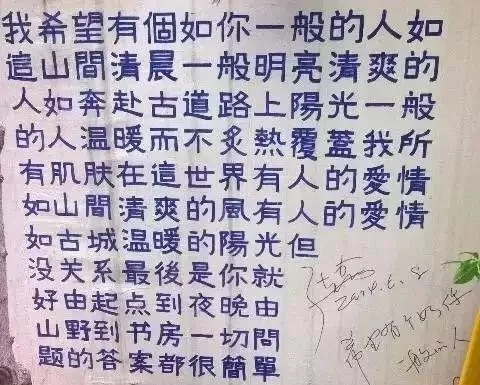 我希望有個如你一般的人如
這山間清晨一般明亮清爽的
人如奔赴古道路上陽光一般
的人温暖而不炙熱覆蓋我所
有肌肤在這世界有人的愛情
如山間清爽的風有人的愛情
如古城温暖的陽光但
没关系最後是你就
好由起点到夜晚由
山野到书房一切問
题的答案都很簡單
2014.6.8
希望有个如你
一般的人